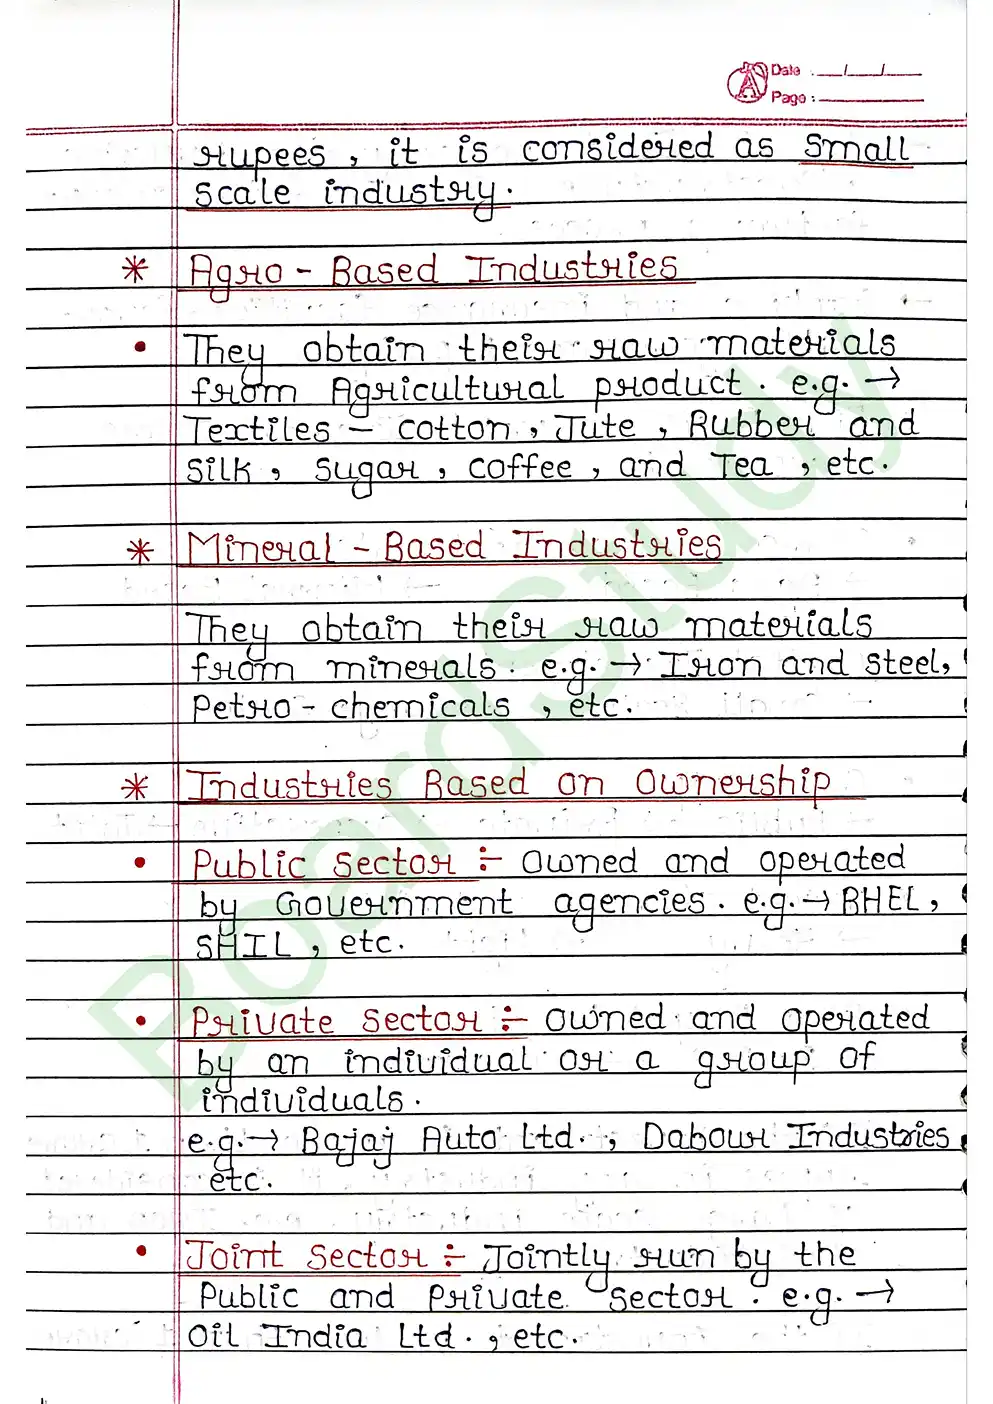 Date : __/__/__
Page :
rupees , it is considered as small
scale industry.
* Agro - Based Industries
• They obtain their raw materials
from Agricultural product. e.g. →
Textiles - cotton , Jute , Rubber and
silk , sugar , coffee , and Tea , etc.
* Mineral - Based Industries
They obtain their raw materials
from minerals. e.g. → Iron and steel,
Petro - chemicals , etc.
* Industries Based on Ownership
• Public Sector :- Owned and operated
by Government agencies. e.g. → BHEL,
SHIL , etc.
• Private Sector :- Owned and operated
by an individual or a group of
individuals.
e.g. → Bajaj Auto Ltd. , Dabour Industries
etc.
• Joint Sector :- Jointly run by the
Public and Private sector. e.g. →
Oil India Ltd. , etc.
BoardStudy